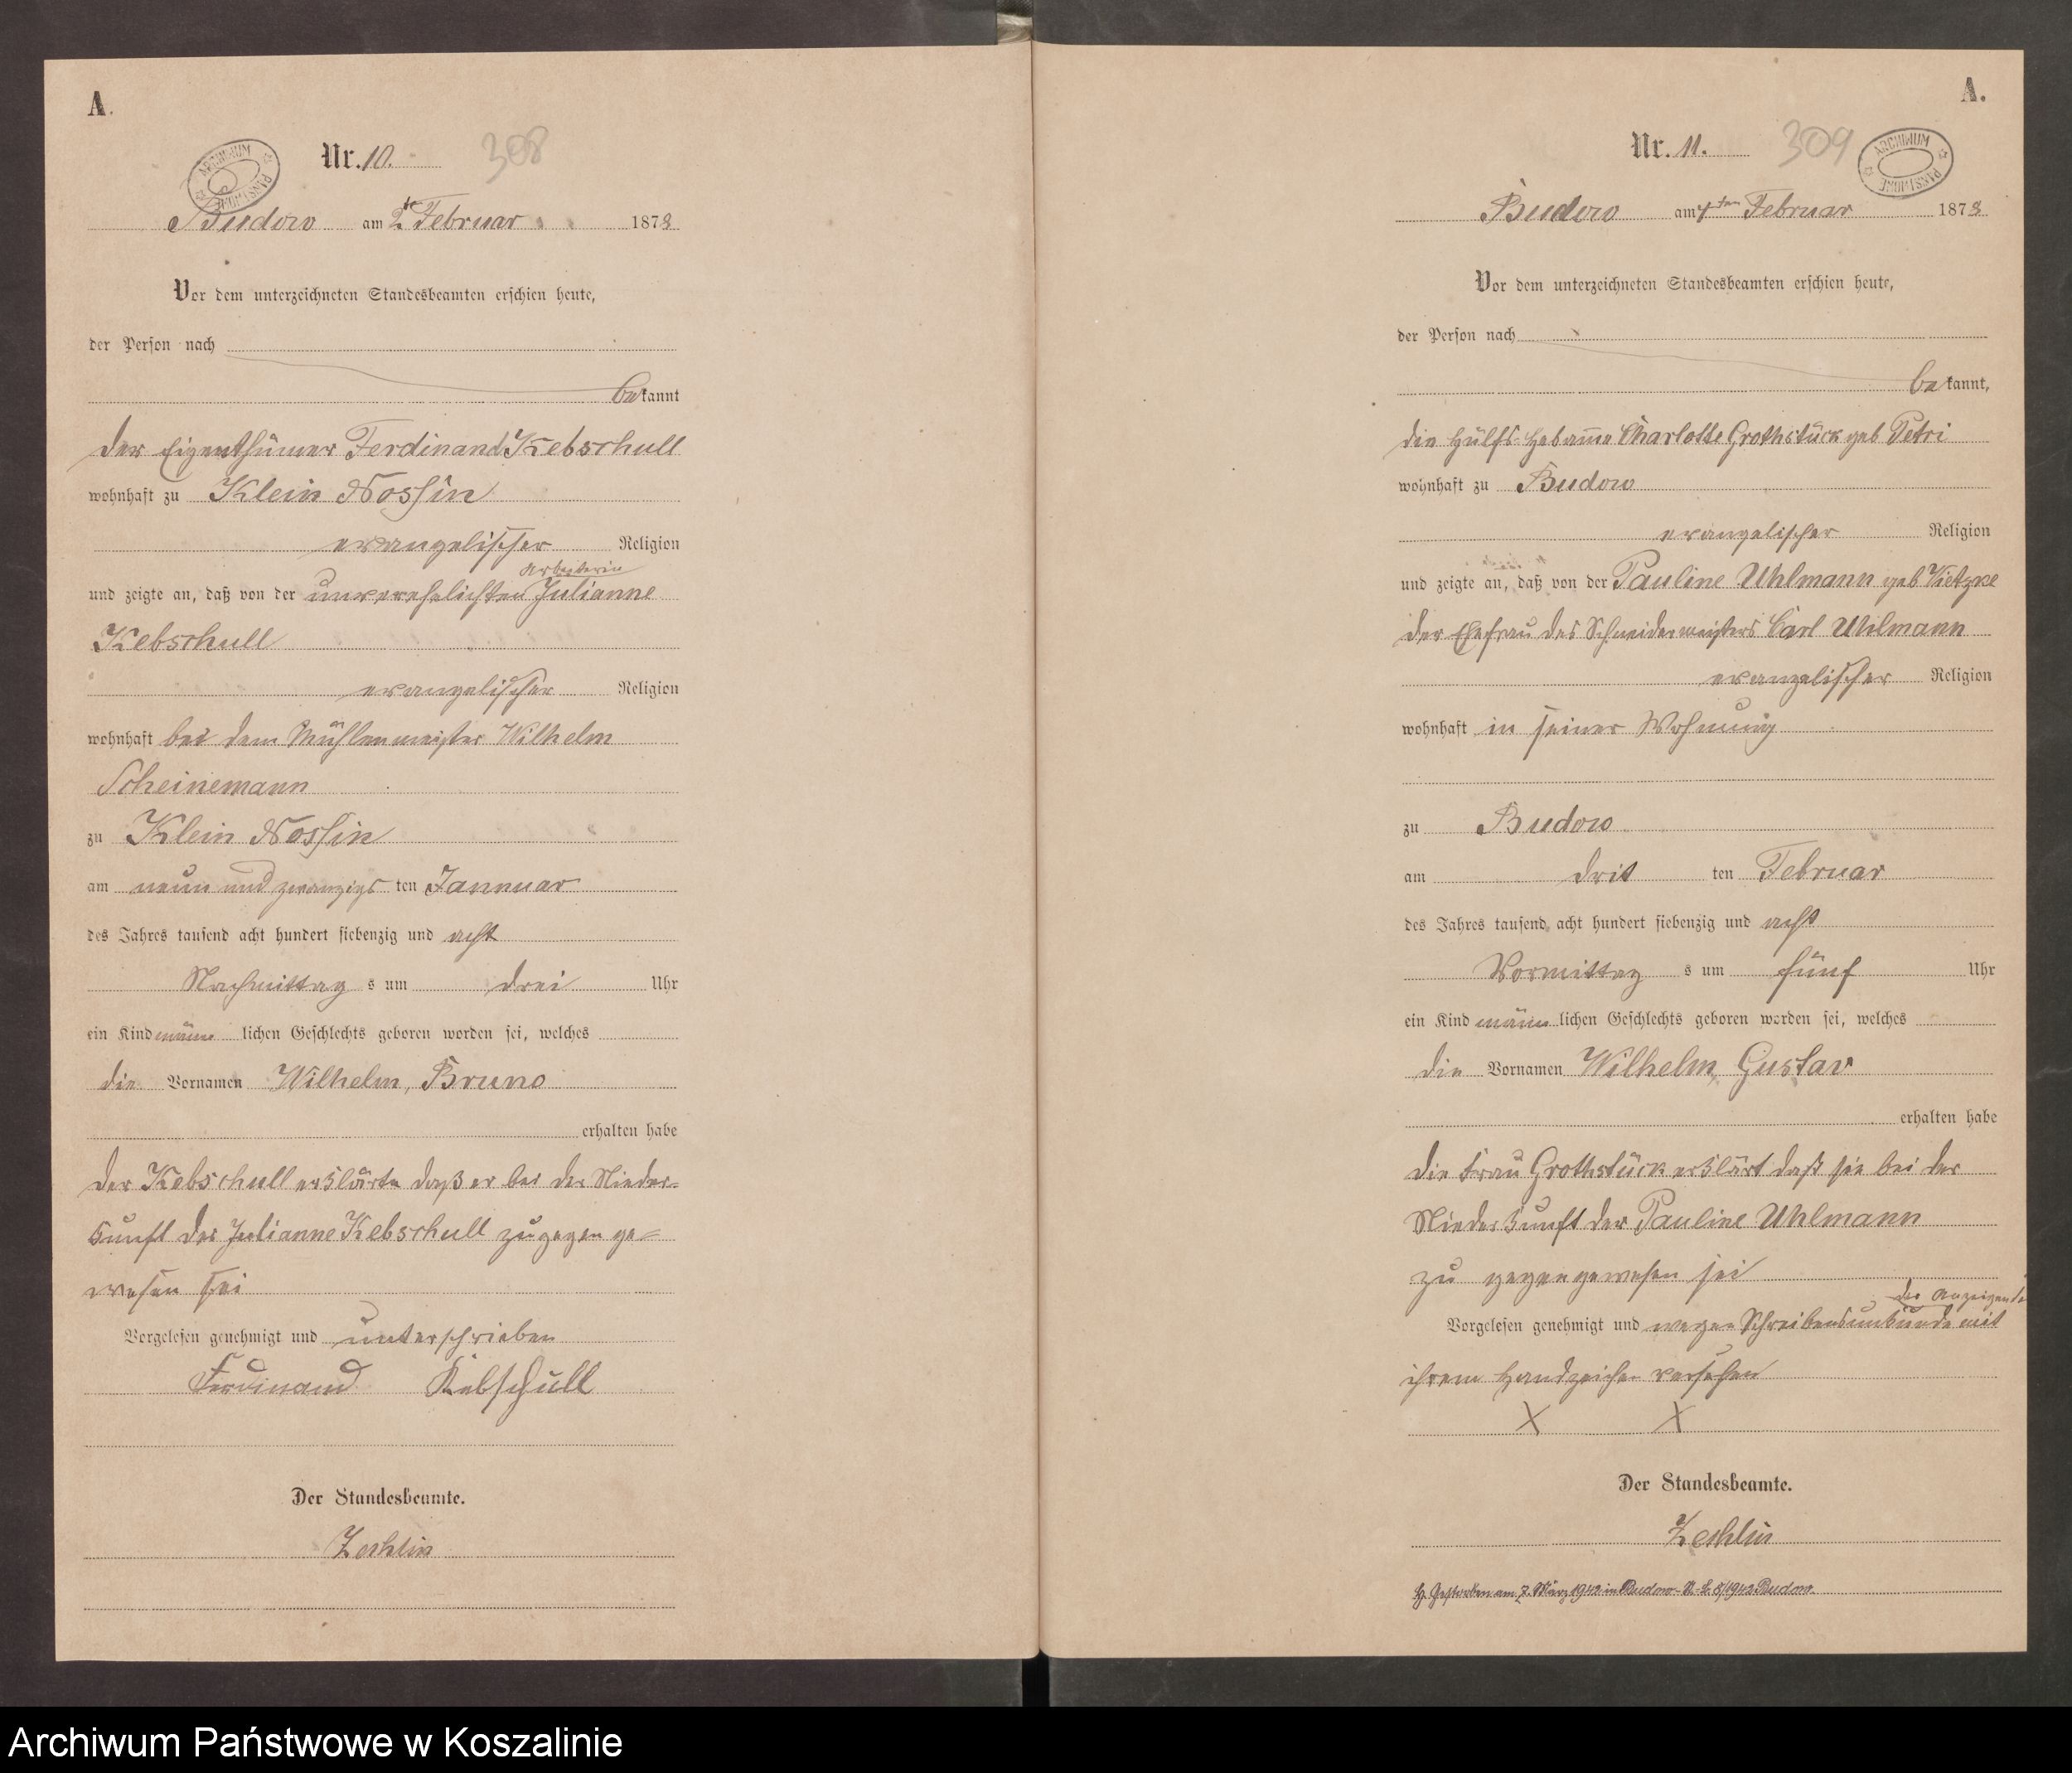 A.
Nr. 10. 308
ARCHIWUM PAŃSTWOWE
Budow am 2te Februar 1878
Vor dem unterzeichneten Standesbeamten erschien heute,
der Person nach
bekannt
der Eigenthümer Ferdinand Kebschull
wohnhaft zu Klein Nossin
evangelischer Religion
Arbeiterin
und zeigte an, daß von der unverehelichten Julianne
Kebschull
evangelischer Religion
wohnhaft bei dem Mühlenmeister Wilhelm
Scheinemann
zu Klein Nossin
am neun und zwanzigs ten Jannuar
des Jahres tausend acht hundert siebenzig und acht
Nachmittag s um drei Uhr
ein Kind männ lichen Geschlechts geboren worden sei, welches
die Vornamen Wilhelm, Bruno
erhalten habe
Der Kebschull erklärte daß er bei der Nieder-
kunft der Julianne Kebschull zugegen ge=
wesen sei
Vorgelesen genehmigt und unterschrieben
Ferdinand Kebschull
Der Standesbeamte.
Zechlin
A.
Nr. 11. 309
ARCHIWUM PAŃSTWOWE
Budow am 4ten Februar 1878
Vor dem unterzeichneten Standesbeamten erschien heute,
der Person nach
bekannt,
die Hülfs-Hebamme Charlotte Grothstück geb Petri
wohnhaft zu Budow
evangelischer Religion
und zeigte an, daß von der Pauline Uhlmann geb Kietzke
der Ehefrau des Schneidermeisters Carl Uhlmann
evangelischer Religion
wohnhaft in seiner Wohnung
zu Budow
am drit ten Februar
des Jahres tausend acht hundert siebenzig und acht
Vormittag s um fünf Uhr
ein Kind männ lichen Geschlechts geboren worden sei, welches
die Vornamen Wilhelm, Gustav
erhalten habe
Die Frau Grothstück erklärt daß sie bei der
Niederkunft der Pauline Uhlmann
zu gegen gewesen sei
der Anzeigende
Vorgelesen genehmigt und wegen Schreibensunkunde mit
ihrem Handzeichen versehen
X X
Der Standesbeamte.
Zechlin
H. Gestorben am 7. März 1942 in Budow - N. 5/1942 Budow.
Archiwum Państwowe w Koszalinie